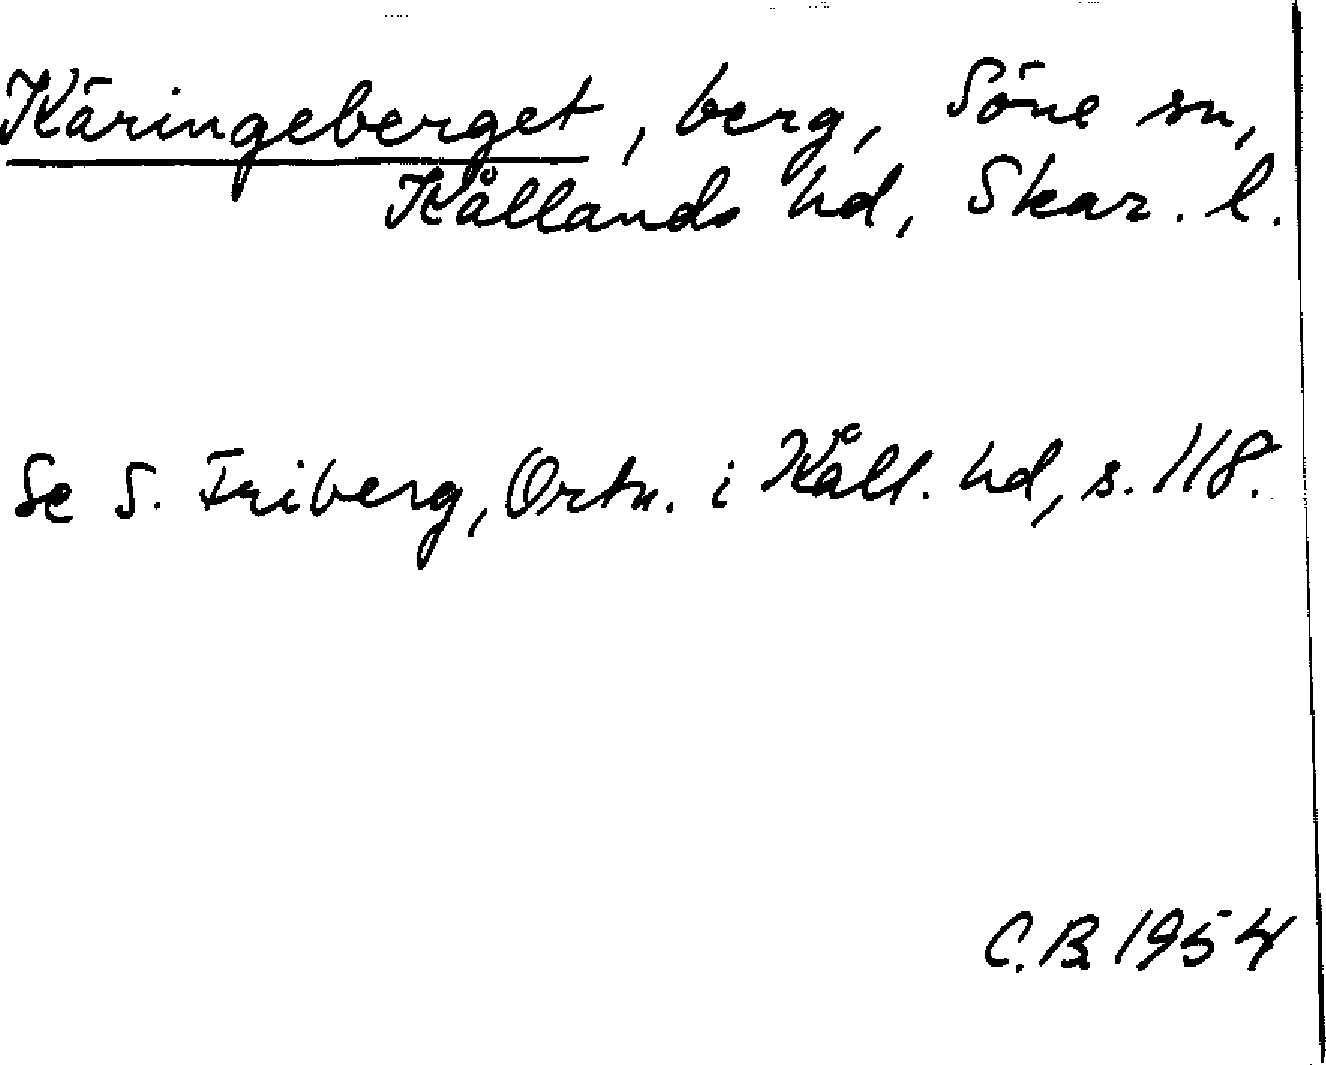 Käringeberget, berg, Söne sn,
Kållands hd, Skar. l.
Se S. Friberg, Ortn. i Kåll. hd, s. 118.
C.B. 1954